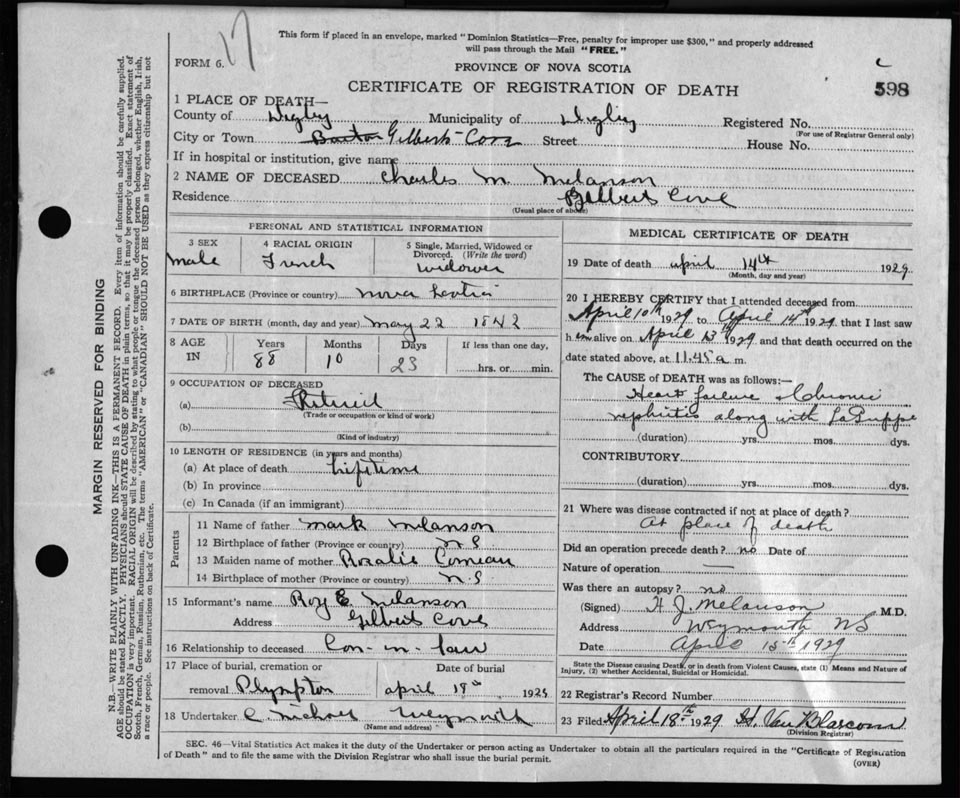 17
This form if placed in an envelope, marked "Dominion Statistics—Free, penalty for improper use $300," and properly addressed
will pass through the Mail "FREE."
FORM 6.
PROVINCE OF NOVA SCOTIA
CERTIFICATE OF REGISTRATION OF DEATH
598
1 PLACE OF DEATH—
County of Digby Municipality of Digby Registered No.
(For use of Registrar General only)
City or Town Barton Gilberts Cove Street House No.
If in hospital or institution, give name
2 NAME OF DECEASED Charles M. Melanson
Residence Gilberts Cove
(Usual place of abode)
PERSONAL AND STATISTICAL INFORMATION
3 SEX male
4 RACIAL ORIGIN French
5 Single, Married, Widowed or
Divorced. (Write the word)
widower
6 BIRTHPLACE (Province or country) Nova Scotia
7 DATE OF BIRTH (month, day and year) May 22 1842
8 AGE IN
Years Months Days If less than one day,
88 10 23 hrs. or min.
9 OCCUPATION OF DECEASED
(a) Retired
(Trade or occupation or kind of work)
(b)
(Kind of industry)
10 LENGTH OF RESIDENCE (in years and months)
(a) At place of death Lifetime
(b) In province
(c) In Canada (if an immigrant)
Parents
11 Name of father Mark Melanson
12 Birthplace of father (Province or country) N S
13 Maiden name of mother Rosalie Comeau
14 Birthplace of mother (Province or country) N.S
15 Informant's name Roy E. Melanson
Address Gilberts Cove
16 Relationship to deceased Son-in-law
17 Place of burial, cremation or Date of burial
removal Plympton April 18th, 1929
18 Undertaker C. Michael Weymouth
(Name and address)
MEDICAL CERTIFICATE OF DEATH
19 Date of death April 14th 1929
(Month, day and year)
20 I HEREBY CERTIFY that I attended deceased from
April 10th 1929 to April 14th 1929 that I last saw
him alive on April 13th 1929 and that death occurred on the
date stated above, at 11.45 a m.
The CAUSE OF DEATH was as follows:—
Heart failure & Chronic
nephritis along with LaGrippe
(duration) yrs. mos. dys.
CONTRIBUTORY.
(duration) yrs. mos. dys.
21 Where was disease contracted if not at place of death?
At place of death
Did an operation precede death? no Date of
Nature of operation —
Was there an autopsy? no
(Signed) H J. Melanson M.D.
Address Weymouth NS
Date April 15th 1929
State the Disease causing Death, or in death from Violent Causes, state (1) Means and Nature of
Injury, (2) whether Accidental, Suicidal or Homicidal.
22 Registrar's Record Number
23 Filed April 18th 1929 H. Van Blarcom
(Division Registrar)
SEC. 46—Vital Statistics Act makes it the duty of the Undertaker or person acting as Undertaker to obtain all the particulars required in the "Certificate of Registration
of Death" and to file the same with the Division Registrar who shall issue the burial permit.
(OVER)
MARGIN RESERVED FOR BINDING
N.B.—WRITE PLAINLY WITH UNFADING INK—THIS IS A PERMANENT RECORD. Every item of information should be carefully supplied.
AGE should be stated EXACTLY. PHYSICIANS should STATE CAUSE OF DEATH in plain terms, so that it may be properly classified. Exact statement of
OCCUPATION is very important. RACIAL ORIGIN will be described by stating to what people or tongue the deceased person belonged, whether English, Irish,
Scotch, French, German, Russian, Ruthenian, etc. The terms "AMERICAN" or "CANADIAN" SHOULD NOT BE USED as they express citizenship but not
a race or people. See instructions on back of Certificate.